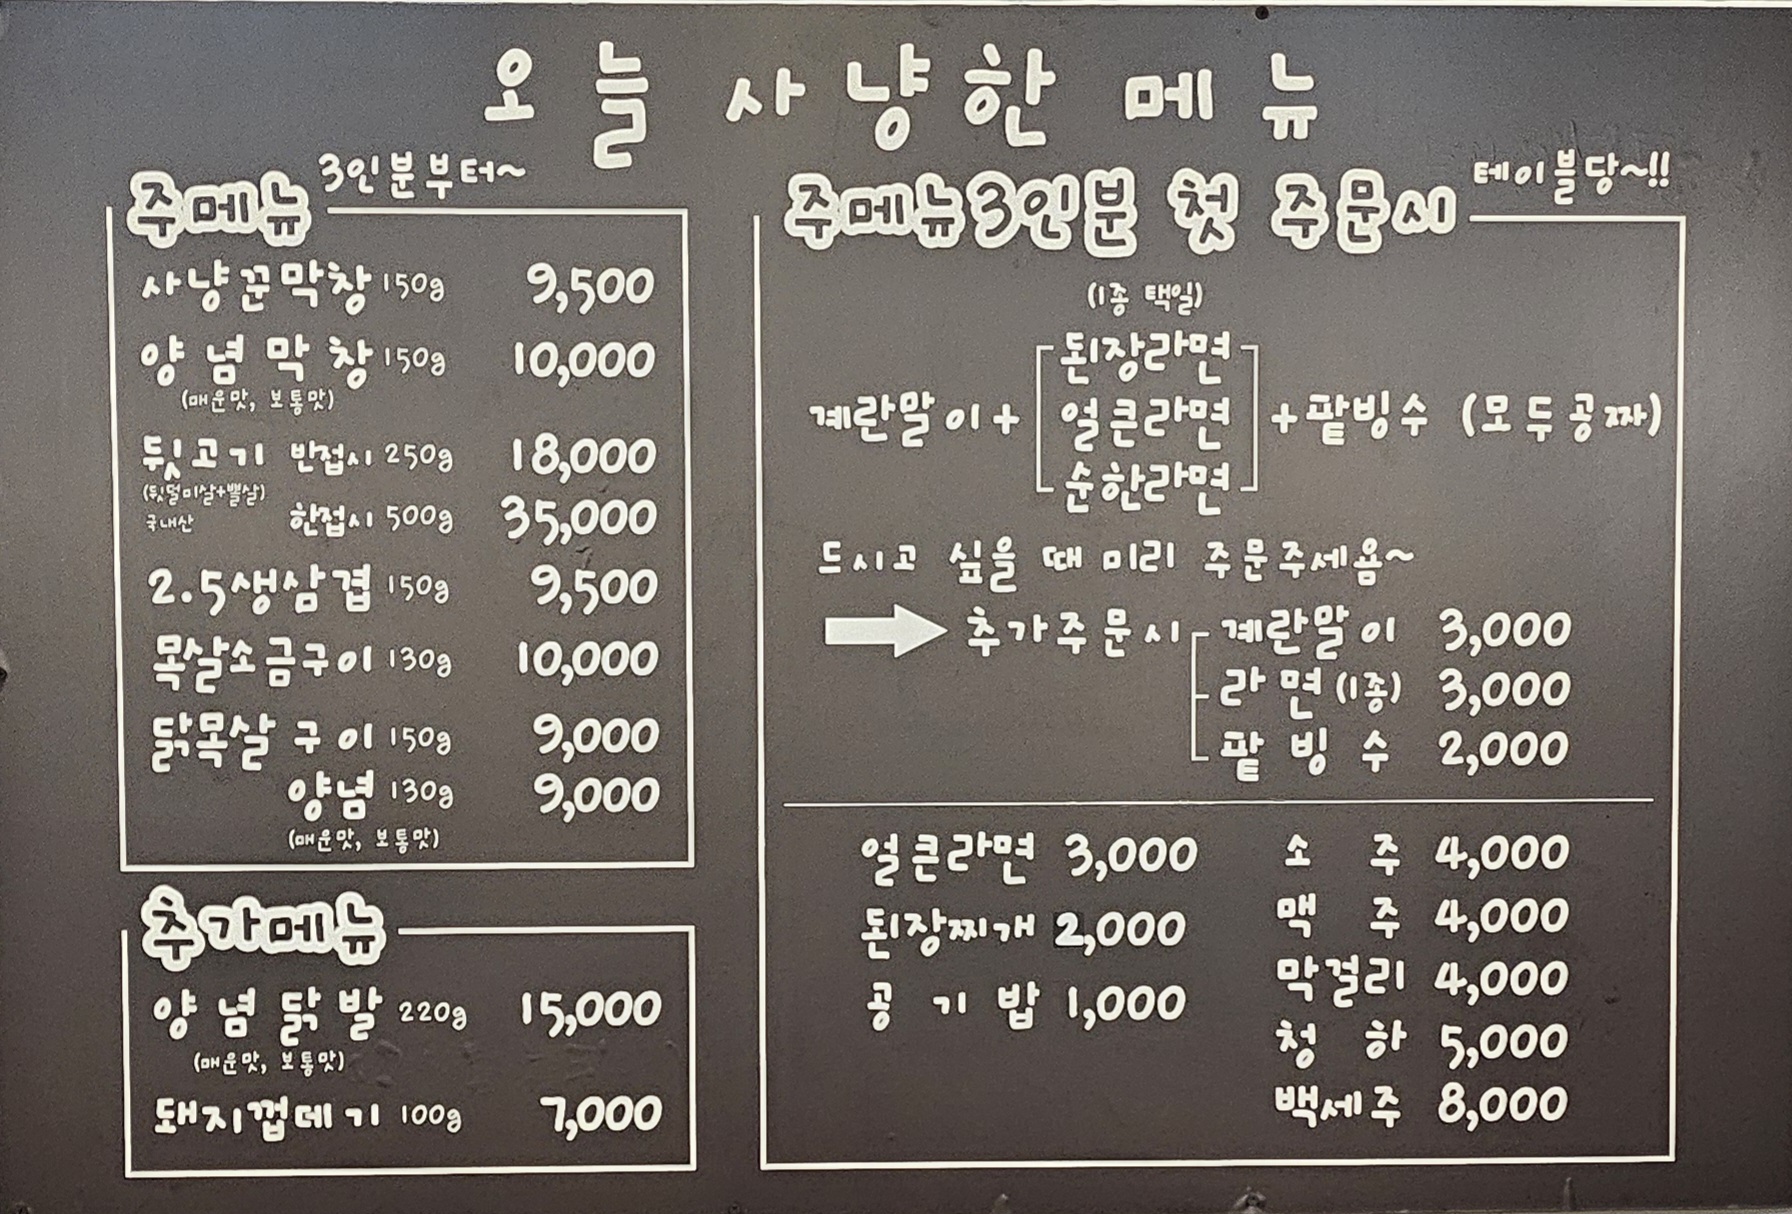 오늘 사냥한 메뉴
주메뉴 3인분부터~
사냥꾼막창 150g 9,500
양념막창 150g 10,000
(매운맛, 보통맛)
뒷고기 반접시 250g 18,000
(뒷덜미살+뽈살)
국내산 한접시 500g 35,000
2.5생삼겹 150g 9,500
목살소금구이 130g 10,000
닭목살 구이 150g 9,000
양념 130g 9,000
(매운맛, 보통맛)
추가메뉴
양념닭발 220g 15,000
(매운맛, 보통맛)
돼지껍데기 100g 7,000
주메뉴3인분 첫 주문시 테이블당~!!
(1종 택일)
된장라면
계란말이+ 얼큰라면 +팥빙수 (모두공짜)
순한라면
드시고 싶을 때 미리 주문주세욤~
추가주문시 계란말이 3,000
라면(1종) 3,000
팥빙수 2,000
얼큰라면 3,000
된장찌개 2,000
공기밥 1,000
소주 4,000
맥주 4,000
막걸리 4,000
청하 5,000
백세주 8,000